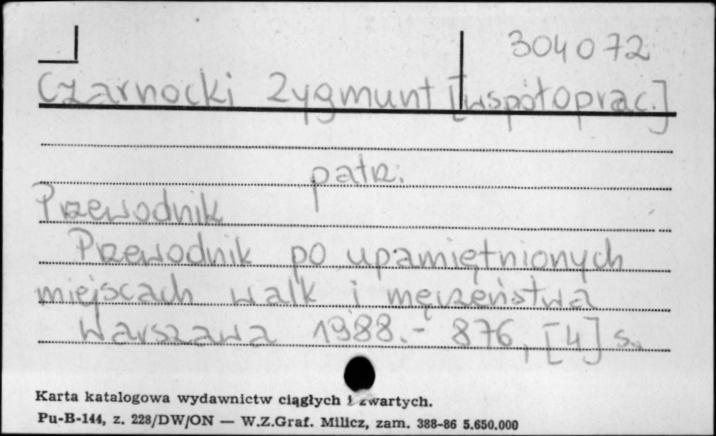 304072
Czarnocki Zygmunt [współoprac.]
patrz:
Przewodnik
Przewodnik po upamiętnionych
miejscach walk i męczeństwa
Warszawa 1988.- 876, [4] s.
Karta katalogowa wydawnictw ciągłych i zwartych.
Pu-B-144, z. 228/DW/ON — W.Z.Graf. Milicz, zam. 388-86 5.650.000